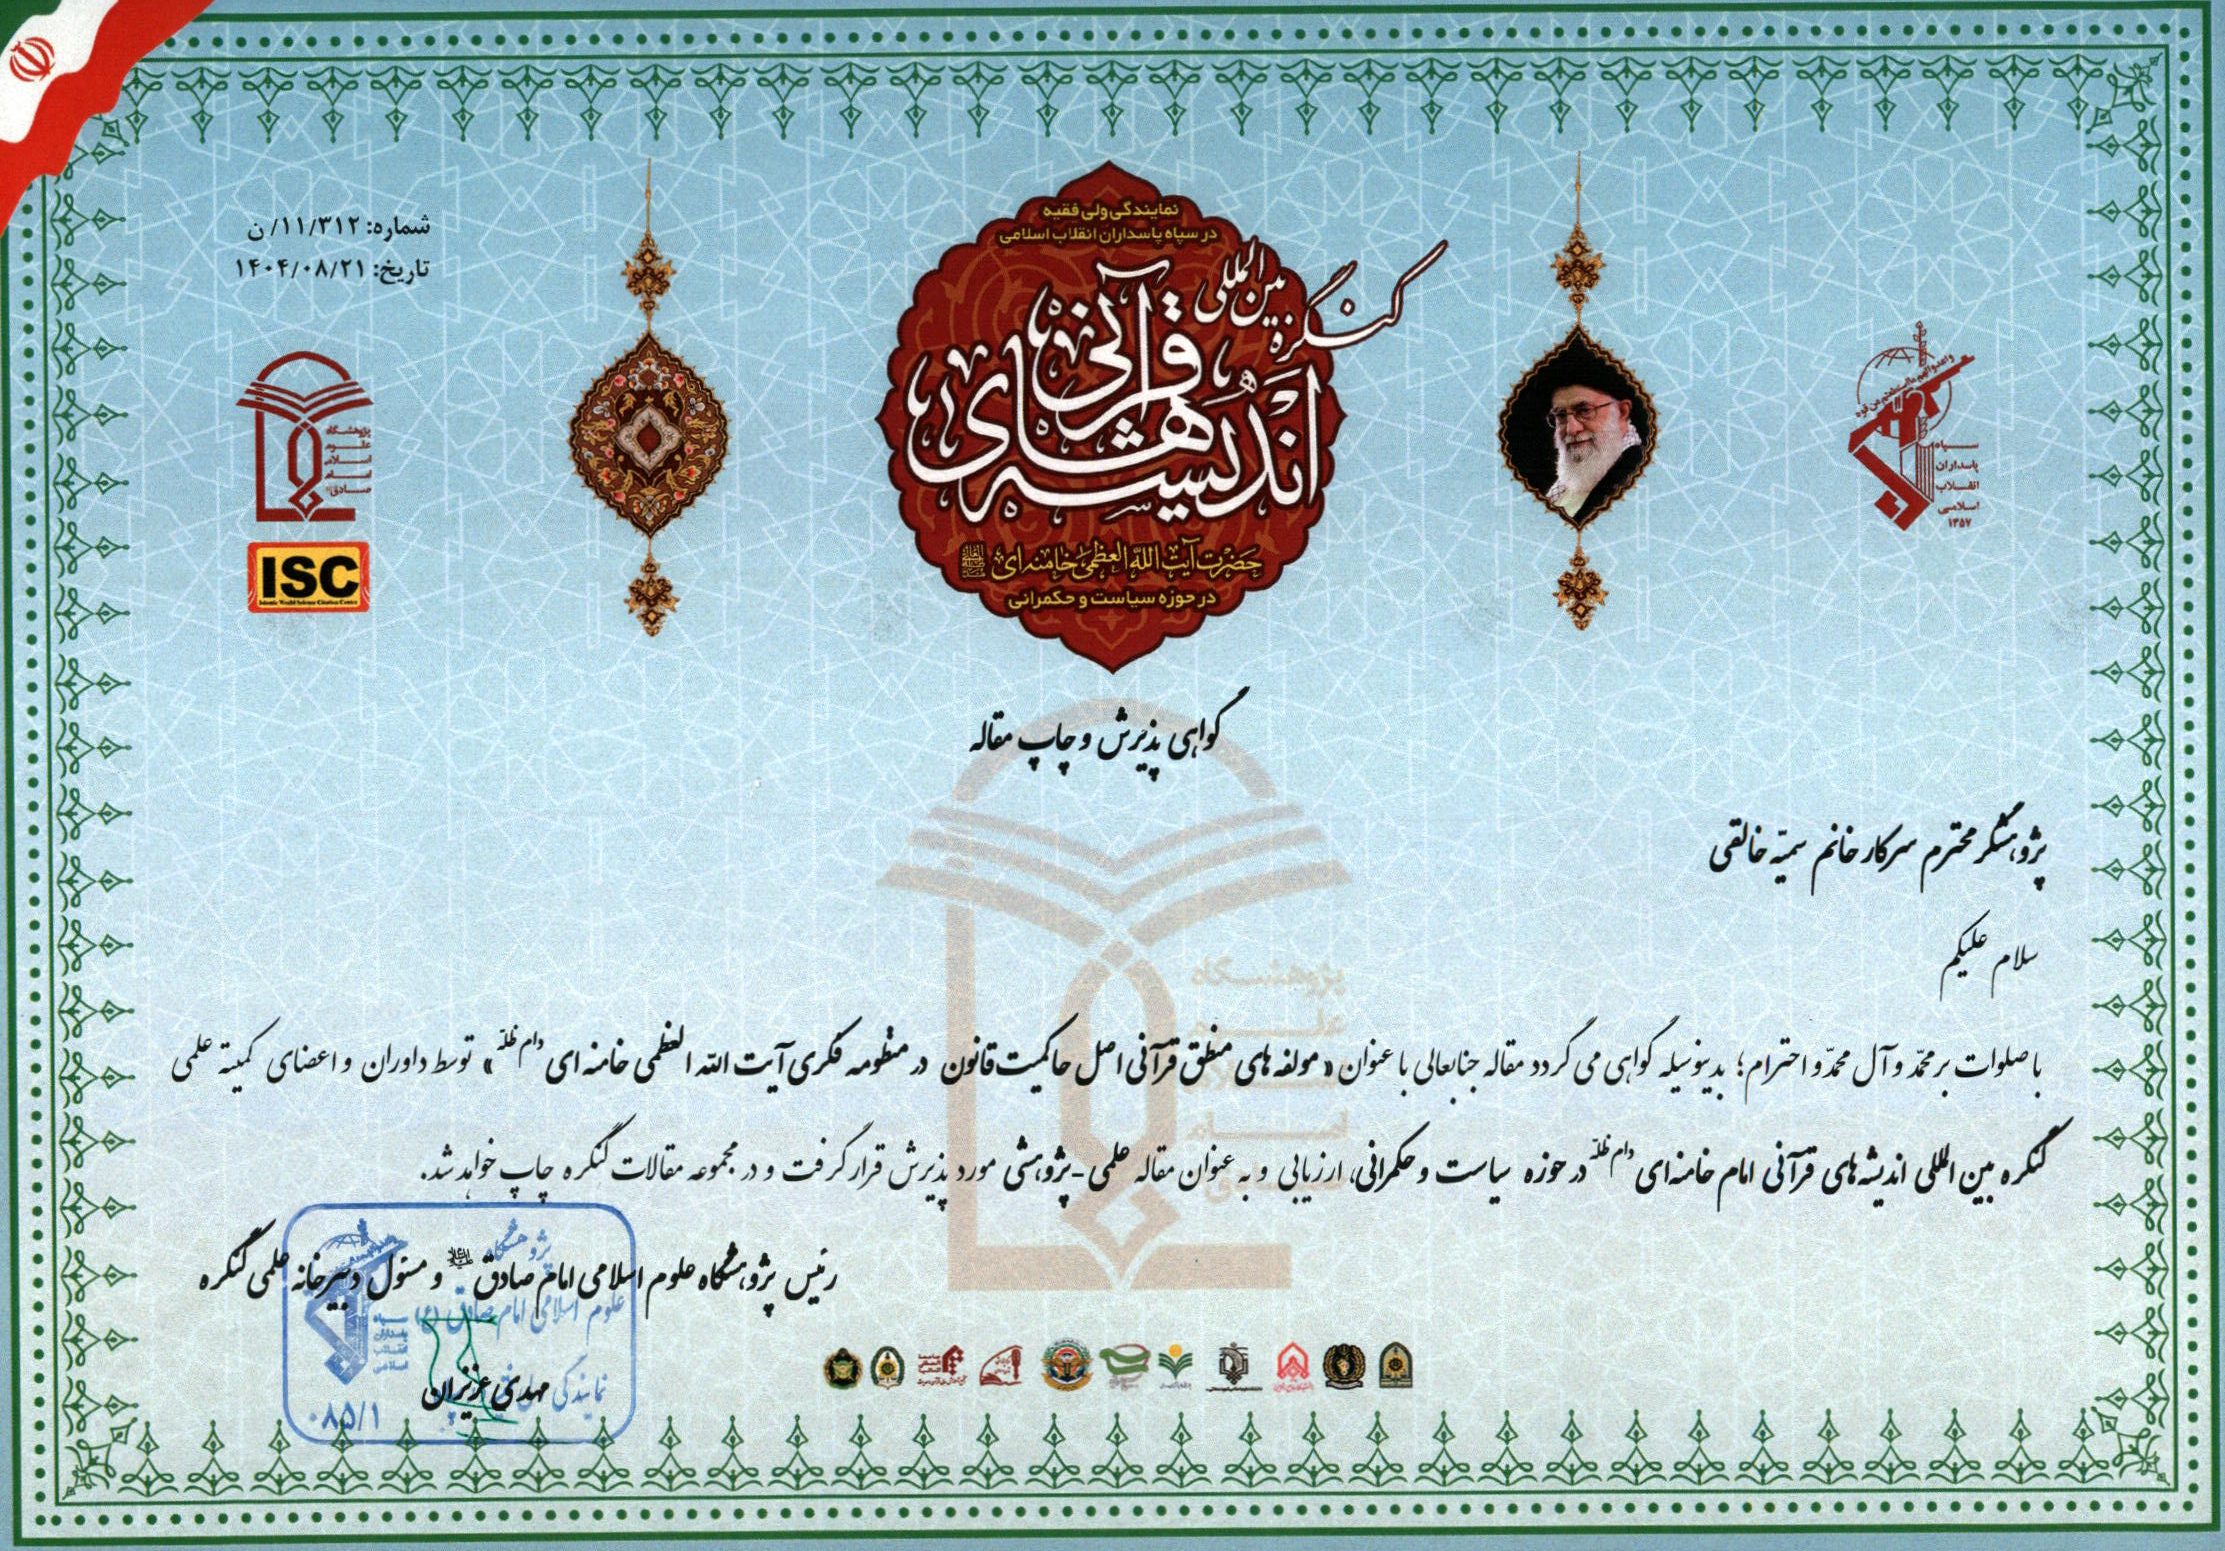 شماره: ۱۱/۳۱۲/ن
تاریخ: ۱۴۰۴/۰۸/۲۱
نمایندگی ولی فقیه
در سپاه پاسداران انقلاب اسلامی
کنگره بین المللی
اندیشه های قرآنی
حضرت آیت الله العظمی خامنه ای
در حوزه سیاست و حکمرانی
سپاه
پاسداران
انقلاب
اسلامی
۱۳۵۷
پژوهشگاه
علوم
اسلامی
امام
صادق
ISC
Islamic World Science Citation Center
گواهی پذیرش و چاپ مقاله
پژوهشگر محترم سرکار خانم سمیّه خالقی
سلام علیکم
با صلوات بر محمّد و آل محمّد و احترام؛ بدینوسیله گواهی می گردد مقاله جنابعالی با عنوان «مولفه های منطق قرآنی اصل حاکمیت قانون در منظومه فکری آیت الله العظمی خامنه ای دام ظلّه» توسط داوران و اعضای کمیته علمی
کنگره بین المللی اندیشه های قرآنی امام خامنه ای دام ظلّه در حوزه سیاست و حکمرانی، ارزیابی و به عنوان مقاله علمی-پژوهشی مورد پذیرش قرار گرفت و در مجموعه مقالات کنگره چاپ خواهد شد.
رئیس پژوهشگاه علوم اسلامی امام صادق و مسئول دبیرخانه علمی کنگره
مهدی عزیزان
پژوهشگاه
علوم اسلامی امام صادق (ع)
سپاه
پاسداران
انقلاب
اسلامی
نمایندگی
۰۸۵/۱